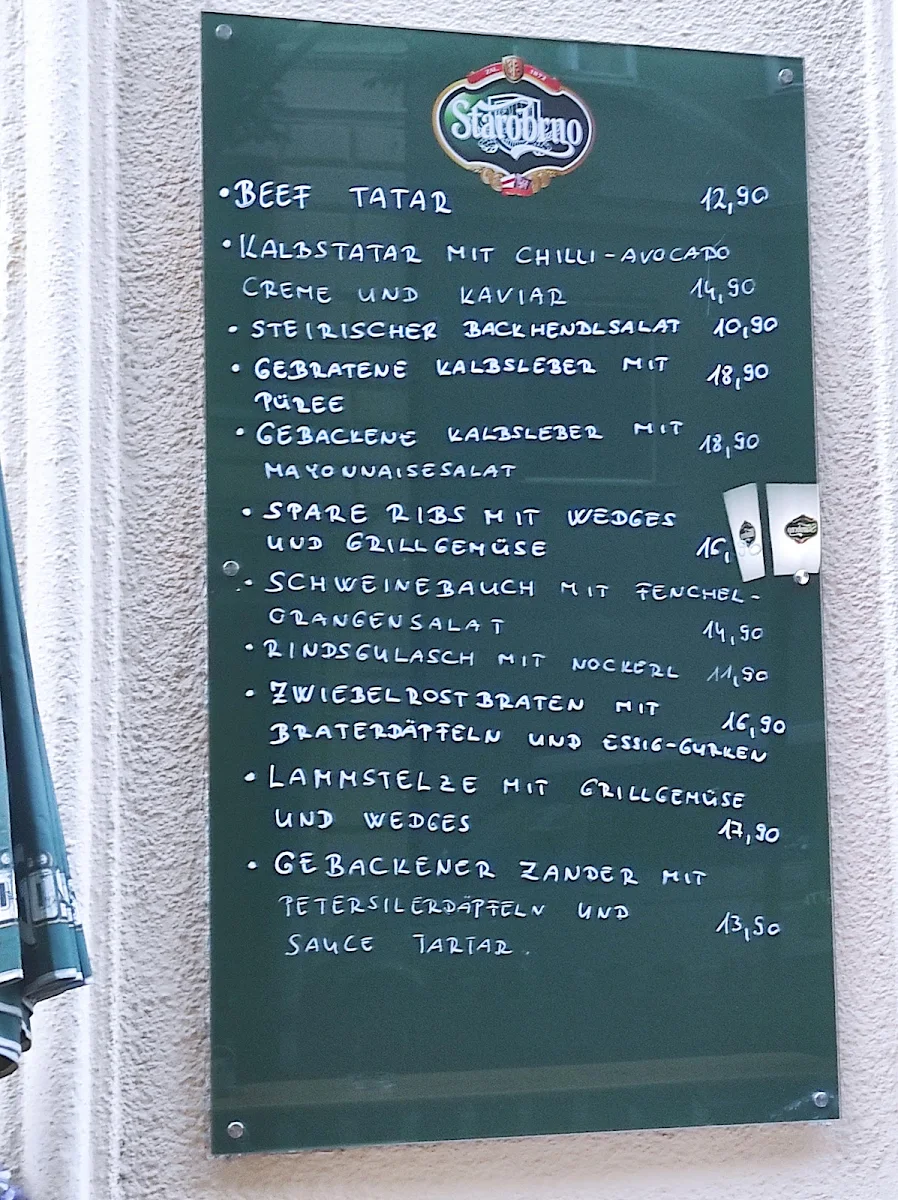 EST. 1872
Starobrno
• BEEF TATAR 12,90
• KALBSTATAR MIT CHILLI-AVOCADO
CREME UND KAVIAR 14,90
• STEIRISCHER BACKHENDLSALAT 10,90
• GEBRATENE KALBSLEBER MIT 18,90
PÜREE
• GEBACKENE KALBSLEBER MIT 18,90
MAYONNAISESALAT
• SPARE RIBS MIT WEDGES
UND GRILLGEMÜSE 16,
• SCHWEINEBAUCH MIT FENCHEL-
ORANGENSALAT 14,90
• RINDSGULASCH MIT NOCKERL 11,90
• ZWIEBELROSTBRATEN MIT 16,90
BRATERDÄPFELN UND ESSIG-GURKEN
• LAMMSTELZE MIT GRILLGEMÜSE
UND WEDGES 17,90
• GEBACKENER ZANDER MIT
PETERSILERDÄPFELN UND 13,90
SAUCE TARTAR.